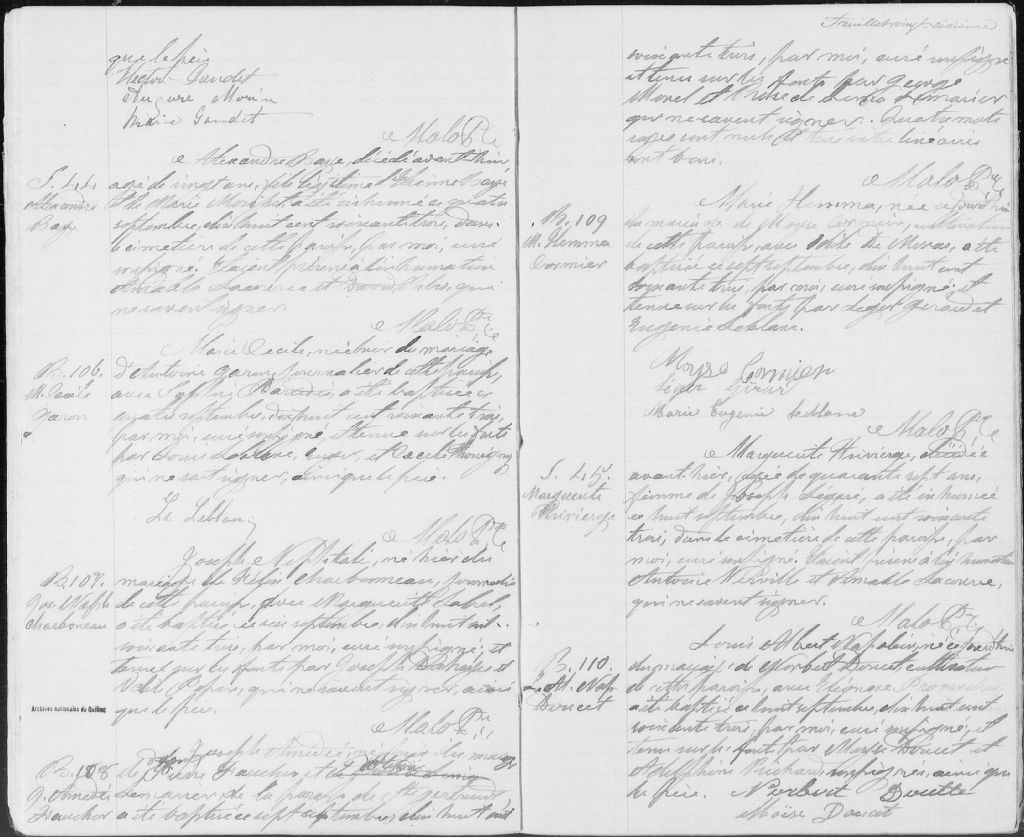 que le père
Hector Gaudet
Marie Gaudet
Malo Ptre
S. 44.
Alexandre
Baye
Alexandre Baye, décédé avant-hier
agé de vingt ans, fils légitime d'Etienne
et de Marie a été inhumé ce quatre
septembre, dix huit cent soixante trois, dans
le cimetière de cette paroisse, par moi, curé
soussigné. Etaient présens à l'inhumation
Amable Lacourse et David qui
ne savent signer.
Malo Ptre
B. 106.
M. Cécile
Garon
Marie Cécile, née hier du mariage
d'Antoine Garon, journalier de cette paroisse,
avec Sophie a été baptisée ce
quatre septembre, dix huit cent soixante trois,
par moi, curé soussigné, et tenue sur les fonts
par Louis Leblanc, et Cécile
qui ne sait signer, ainsi que le père.
Ls Leblanc
Malo Ptre
B. 107.
Jos. Neph
Charboneau
Joseph Nephtalie, né hier du
mariage de Charbonneau, journalier
de cette paroisse, avec Marguerite Label,
a été baptisé ce six septembre, dix huit cent
soixante trois, par moi, curé soussigné, et
tenu sur les fonts par Joseph et
Odile Pepin, qui ne savent signer, ainsi
que le père.
Malo Ptre
Archives nationales du Québec
B. 108
J. Amédé
Faucher
Joseph Amédé, né hier du mariage
de Pierre Faucher, et
de la paroisse de St Gertrude
a été baptisé ce sept septembre, dix huit cent
soixante trois, par moi, curé soussigné
et tenu sur les fonts par George
Morel et Rose de Lima Lemarier
qui ne savent signer. Quatre mots
rayés sont nuls et trois interlinéaires
sont bons.
Malo Ptre
B. 109
M. Hemma
Cormier
Marie Hemma, née aujourd'hui
du mariage de Moyse Cormier, cultivateur
de cette paroisse, avec a été
baptisée ce sept septembre, dix huit cent
soixante trois, par moi, curé soussigné, et
tenue sur les fonts par Léger Girard et
Eugénie Leblanc.
Moyse Cormier
Léger Girar
Marie Eugenie Leblanc
Malo Ptre
S. 45.
Marguerite
Thivierge
Marguerite Thivierge, décédée
avant-hier, agée de quarante sept ans,
femme de Joseph Légaré, a été inhumée
ce huit septembre, dix huit cent soixante
trois, dans le cimetière de cette paroisse, par
moi, curé soussigné. Etaient présens à l'inhumation
Antoine et Amable Lacourse,
qui ne savent signer.
Malo Ptre
B. 110.
L. Al. Nap.
Doucet
Louis Albert Napoléon, né aujourd'hui
du mariage de Norbert Doucet cultivateur
de cette paroisse, avec Eléonore Provencher
a été baptisé ce huit septembre, dix huit cent
soixante trois, par moi, curé soussigné, et
tenu sur les fonts par Moyse Doucet et
Adelphine Richard, soussignés, ainsi que
le père. Norbert Doucette
Moïse Doucet